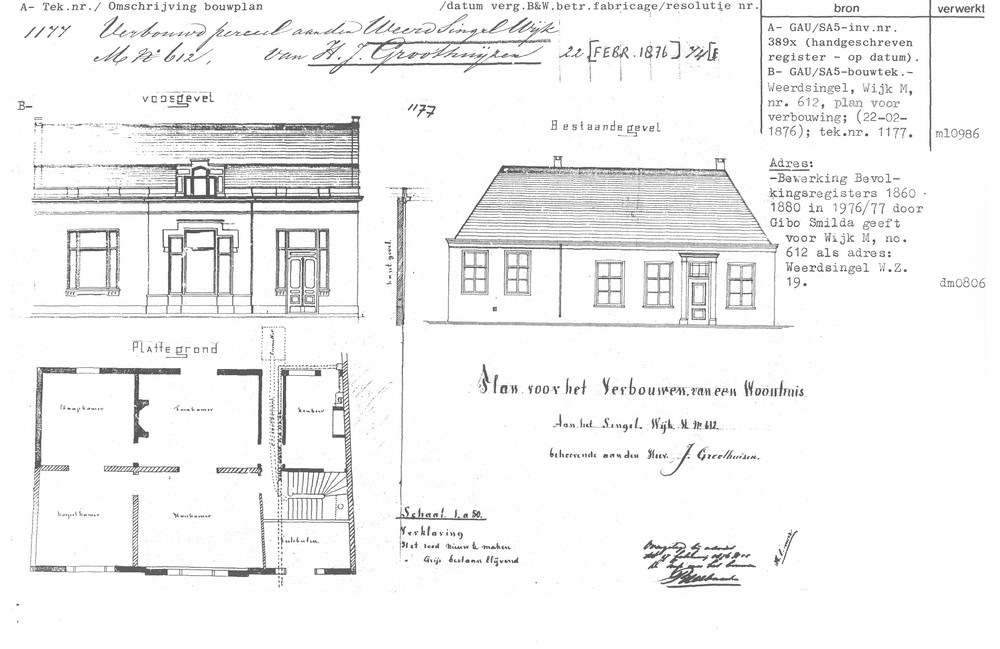 A- Tek.nr./ Omschrijving bouwplan /datum verg.B&W.betr.fabricage/resolutie nr. bron verwerkt
1177 Verbouwd perceel aan den Weerd Singel Wijk
M No 612, van H. J. Groothuijzen 22 [FEBR. 1876]
A- GAU/SA5-inv.nr.
389x (handgeschreven
register - op datum).
B- GAU/SA5-bouwtek.-
Weerdsingel, Wijk M,
nr. 612, plan voor
verbouwing; (22-02-
1876); tek.nr. 1177. ml0986
Adres:
-Bewerking Bevol-
kingsregisters 1860 -
1880 in 1976/77 door
Gibo Smilda geeft
voor Wijk M, no.
612 als adres:
Weerdsingel W.Z.
19. dm0806
B-
voorgevel
1177
Bestaande gevel
Platte grond
Slaapkamer
Tuinkamer
Keuken
Voorkamer
Plan voor het Verbouwen van een Woonhuis
Aan het Singel. Wijk M No 612.
behoorende aan den Heer. J. Groothuisen.
Schaal 1. a 50.
Verklaring
Het rood nieuw te maken
" Grijs bestaan blijvend